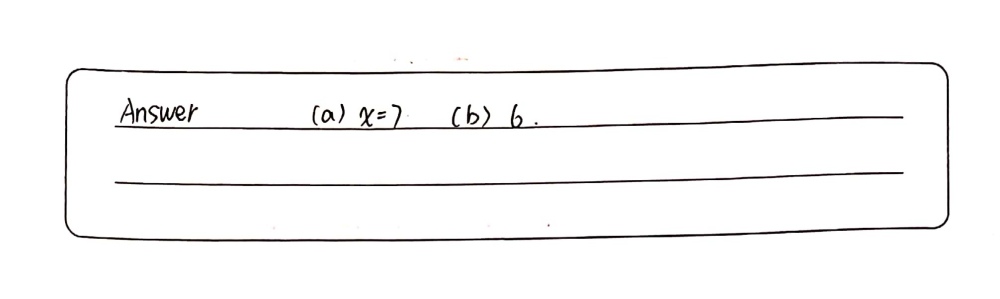 Answer (a) x=7 (b) 6.